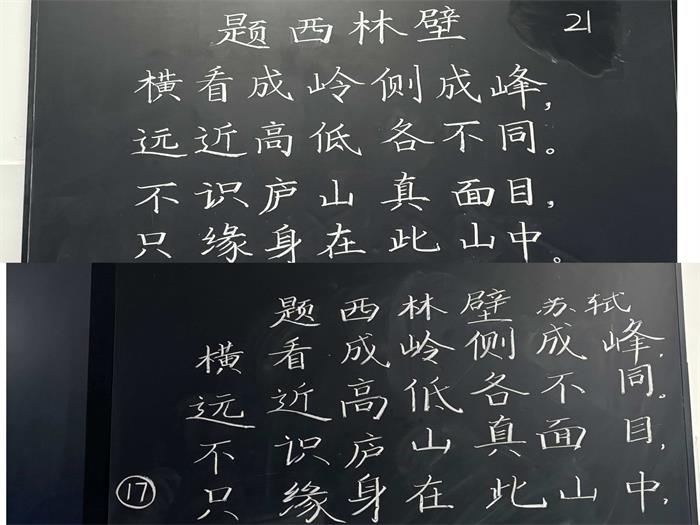 题西林壁 21
横看成岭侧成峰,
远近高低各不同。
不识庐山真面目,
只缘身在此山中。
题西林壁 苏轼
横看成岭侧成峰,
远近高低各不同。
不识庐山真面目,
17 只缘身在此山中,